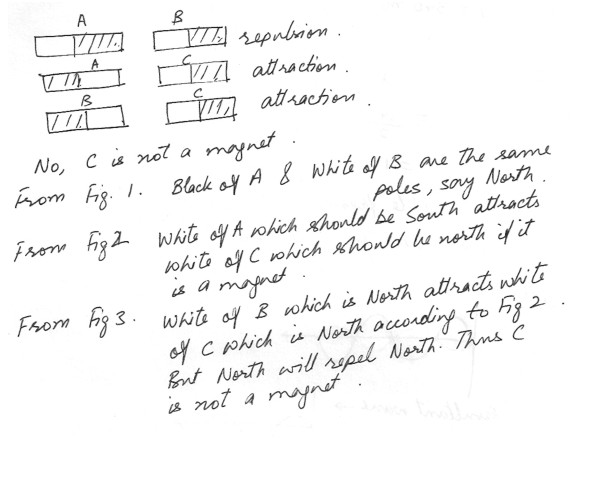 A B
repulsion.
A C
attraction.
B C
attraction.
No, C is not a magnet.
From Fig. 1. Black of A & White of B are the same
poles, say North.
From Fig 2 White of A which should be South attracts
white of C which should be north if it
is a magnet.
From Fig 3. White of B which is North attracts white
of C which is North according to Fig 2.
But North will repel North. Thus C
is not a magnet.